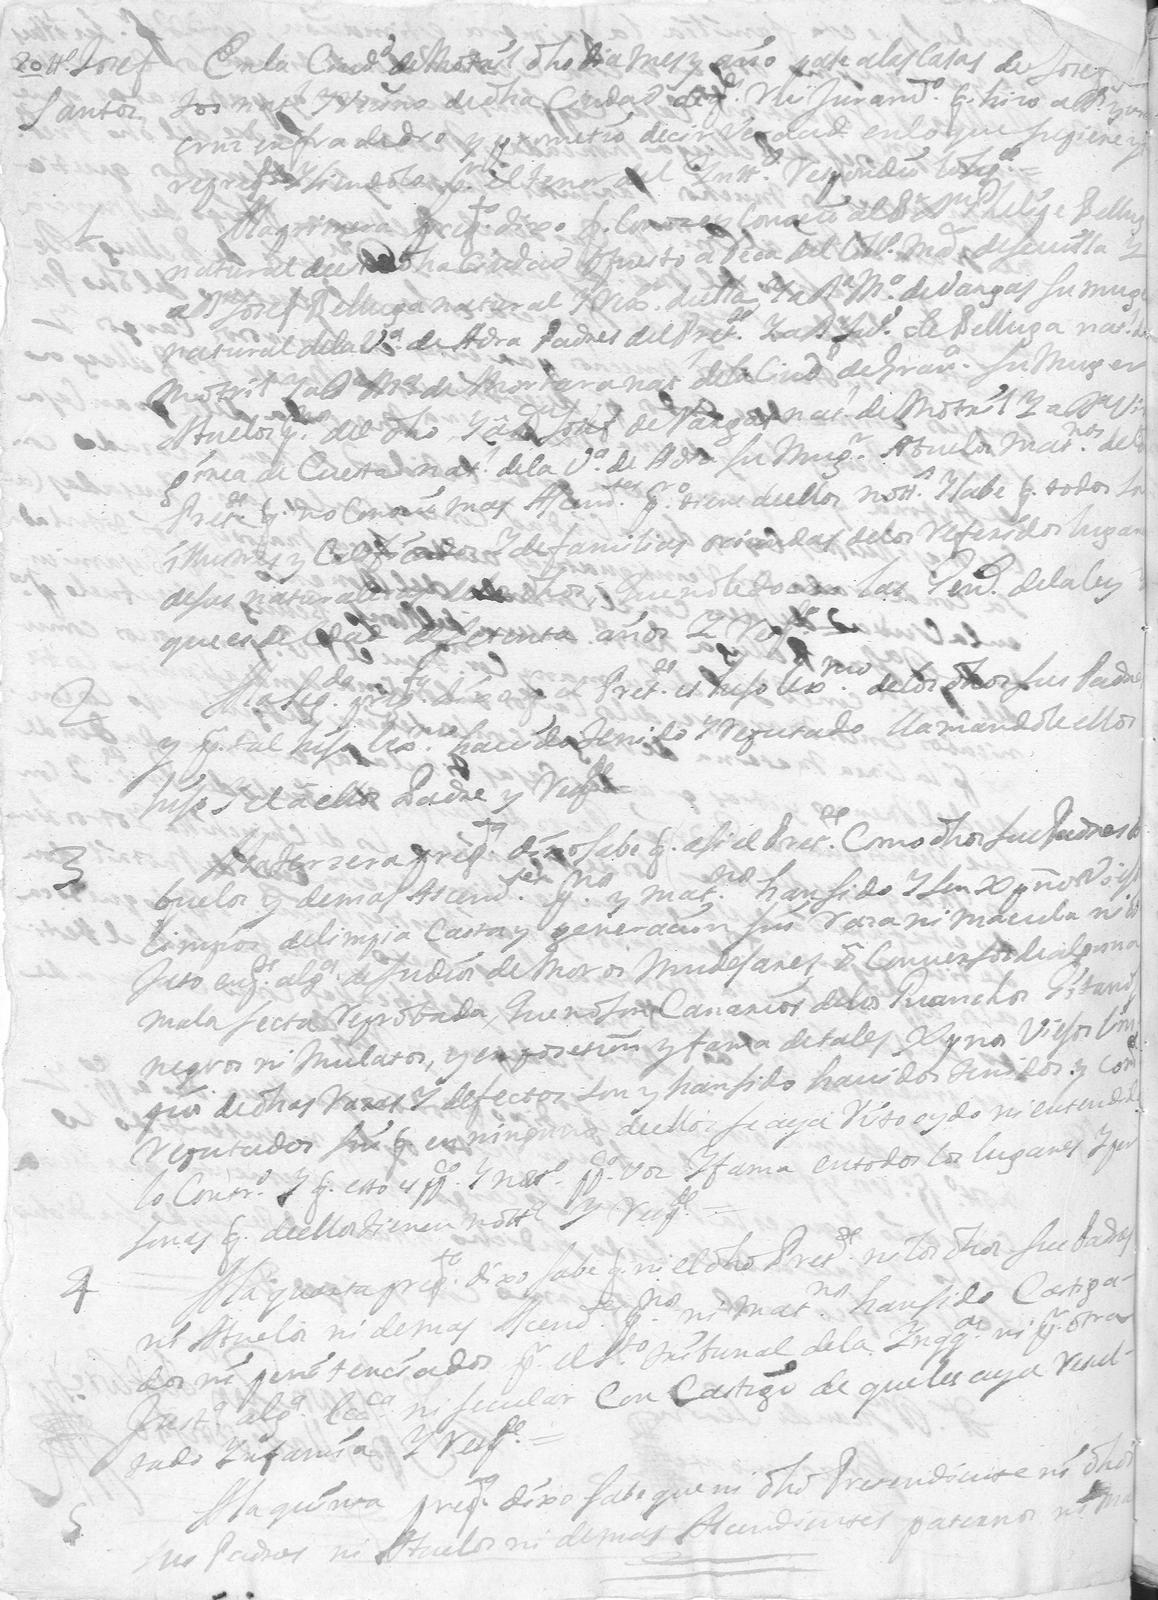 20 tt.º Josef
Santos
En la Ciud.d de Motril dho dia mes y año pase a las Casas de Josef
tos nat.l y vecino de dha Ciudad de q.n Rec.i Juram.to q. hizo a D.s y una
cruz en fra de dro y prometio decir verdad en lo que supiere y
preg.do siendole p.r el tenor del Intt.o Respondio lo sig.te =
1
A la primera preg.ta dixo q. Conoce y Conocio al D.r D.n Phelipe Belluga
natural de esta dha Ciudad opuesto a Beca del Col.o de Sevilla Y
a D.n Josef Belluga natural y vez.o de ella, Y a D.a M.a de Vargas su muger
natural de la V.a de Adra Padres del Pret.te Y a D.n de Belluga nat.l de
Motril Y a D.a M.a de Mortara nat.l de la Ciud.d de Gran.a su Muger
Abuelos p.nos del dho, Y a D.n Josef de Vargas nat.l de Motril Y a D.a Vir
ginea de Cuesta nat.l de la V.a de Adra su Mug.r Abuelos mat.nos del
Pret.te q. no Conocio mas Ascend.tes p.o tiene de ellos nott.a Y sabe q. todos son
illustres y Calificados Y de familias oriundas de los referidos lugares
de sus naturalezas dhos, Que no le tocan las Gen.s de la ley
que es de edad de setenta años Y resp.de =
2
A la seg.da preg.ta dixo q. el Pret.te es hijo lex.mo de los dhos sus Padres
y p.r tal hijo lex.mo havido tenido Y reputado llamandole ellos
hijo Y el a ellos Padre y resp.de =
3
A la terzera preg.ta dixo sabe q. asi el Pret.te Como dhos sus Padres A
buelos y demas Ascend.tes p.nos y mat.nos han sido Y son Xpnos viejos
limpios de limpia Casta y generacion sin raza ni macula ni de
feto en q.to alg.o de Judios de Moros Mudejares, ó Conversos de alguna
mala secta reprobada, Que no son Canarios de los Guanchos Gitanos
negros ni Mulatos, y en posesion y fama de tales Xpnos viejos lim
pios de dhas razas Y defectos son y han sido havidos tenidos y com
reputados sin q. en ninguno de ellos se aya visto oydo ni entendido
lo Contr.o Y q. esto es pp.co Y not.o pp.ca voz Y fama en todos los lugares Y per
sonas q. de ellos tienen nott.a Y resp.de =
4
A la quarta preg.ta dixo sabe q. ni el dho Pret.te ni los dhos sus Padres
ni Abuelos ni demas Ascend.tes p.nos ni mat.nos han sido Castiga-
dos ni penitenciados p.r el S.to tribunal de la Inqq.on ni p.r otras
Just.a alg.a Ecc.ca ni secular Con Castigo de que les aya resul-
tado Infamia Y resp.de =
5
A la quinta preg.ta dixo sabe que ni dho Pretendiente ni dhos
sus Padres ni Abuelos ni demas Ascendientes paternos ni ma